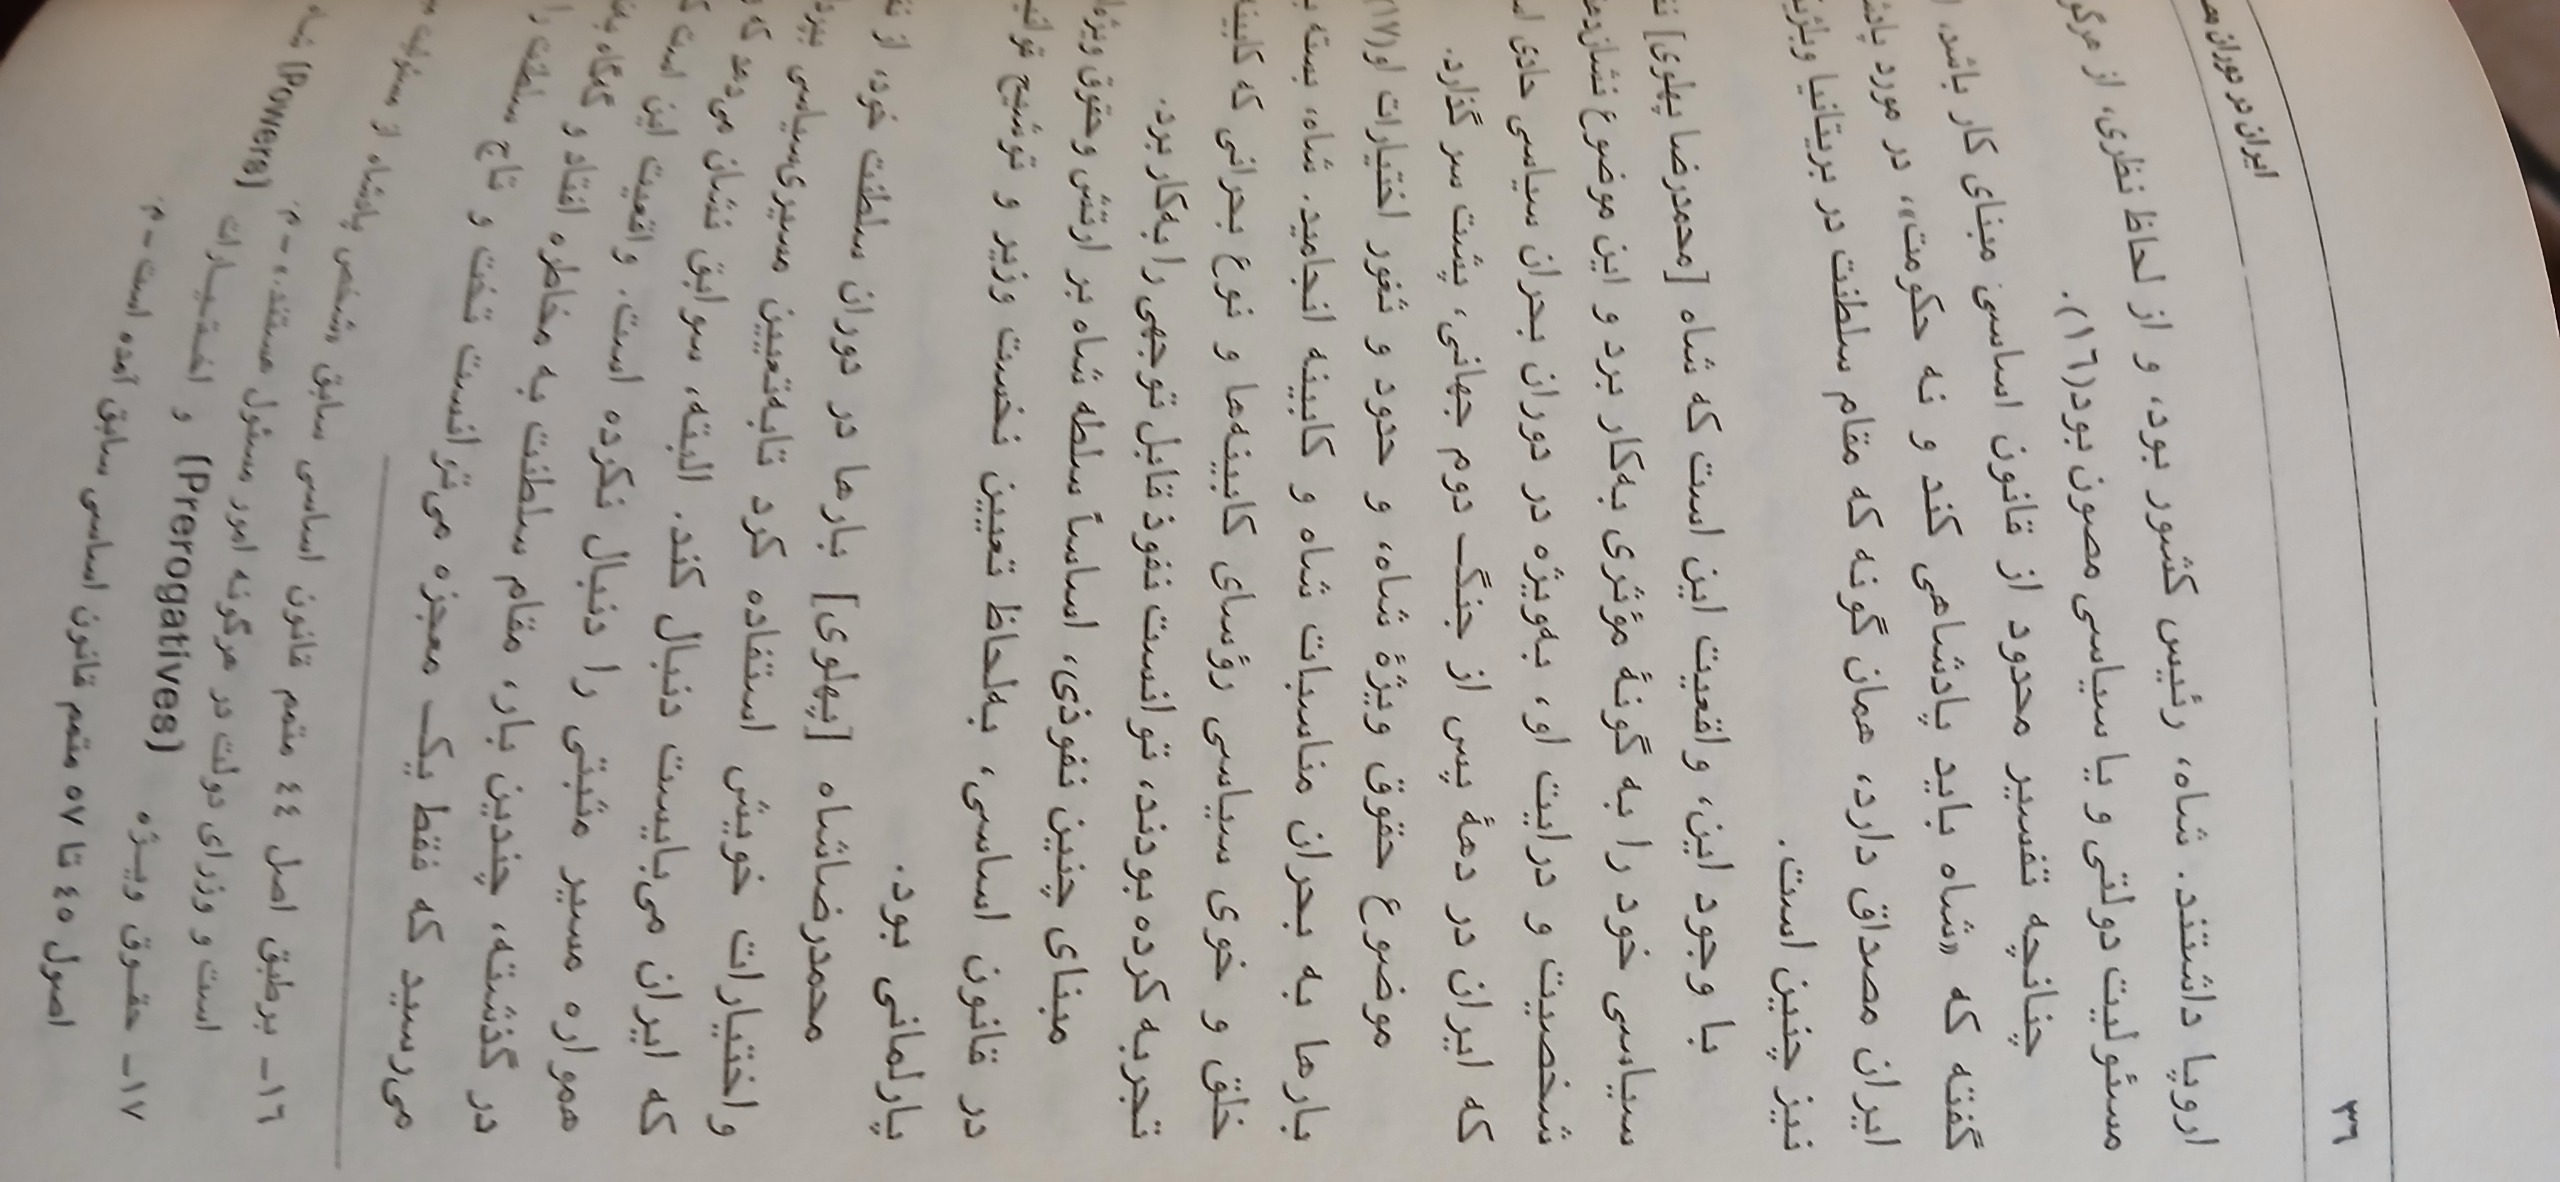 ۳۶
ایران در دوران
اروپا داشتند. شاه، رئیس کشور بود، و از لحاظ نظری، از هرگو
مسئولیت دولتی و یا سیاسی مصون بود(۱۶).
چنانچه تفسیر محدود از قانون اساسی مبنای کار باشد،
گفته که «شاه باید پادشاهی کند و نه حکومت»، در مورد پادش
ایران مصداق دارد، همان گونه که مقام سلطنت در بریتانیا ویژگی
نیز چنین است.
با وجود این، واقعیت این است که شاه [محمدرضا پهلوی]
سیاسی خود را به گونهٔ مؤثری به‌کار برد و این موضوع نشان‌ده
شخصیت و درایت او، به‌ویژه در دوران بحران سیاسی حادی
که ایران در دههٔ پس از جنگ دوم جهانی، پشت سر گذارد.
موضوع حقوق ویژهٔ شاه، و حدود و ثغور اختیارات او(۱۷)
بارها به بحران مناسبات شاه و کابینه انجامید. شاه، بسته
خلق و خوی سیاسی رؤسای کابینه‌ها و نوع بحرانی که کابینه
تجربه کرده بودند، توانست نفوذ قابل توجهی را به‌کار برد.
مبنای چنین نفوذی، اساساً سلطه شاه بر ارتش و حقوق ویژه
در قانون اساسی، به‌لحاظ تعیین نخست وزیر و توشیح
پارلمانی بود.
محمدرضاشاه [پهلوی] بارها در دوران سلطنت خود، از
و اختیارات خویش استفاده کرد تابه‌تعیین مسیری‌سیاسی
که ایران می‌بایست دنبال کند. البته، سوابق نشان می‌دهد که
همواره مسیر مثبتی را دنبال نکرده است. واقعیت این است
در گذشته، چندین بار، مقام سلطنت به مخاطره افتاد و گهگاه
می‌رسید که فقط یک معجزه می‌توانست تخت و تاج سلطنت را
۱۶- برطبق اصل ۴۴ متمم قانون اساسی سابق «شخص پادشاه از مسئولیت
است و وزرای دولت در هرگونه امور مسئول هستند.» - م.
۱۷- حقوق ویژه (Prerogatives) و اختیارات (Powers)
اصول ۴۵ تا ۵۷ متمم قانون اساسی سابق آمده است - م.